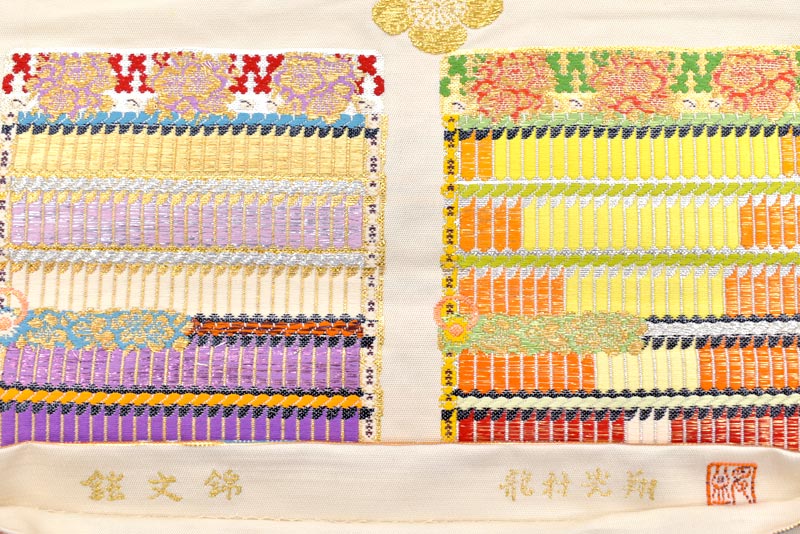 鎧文錦 龍村光翔